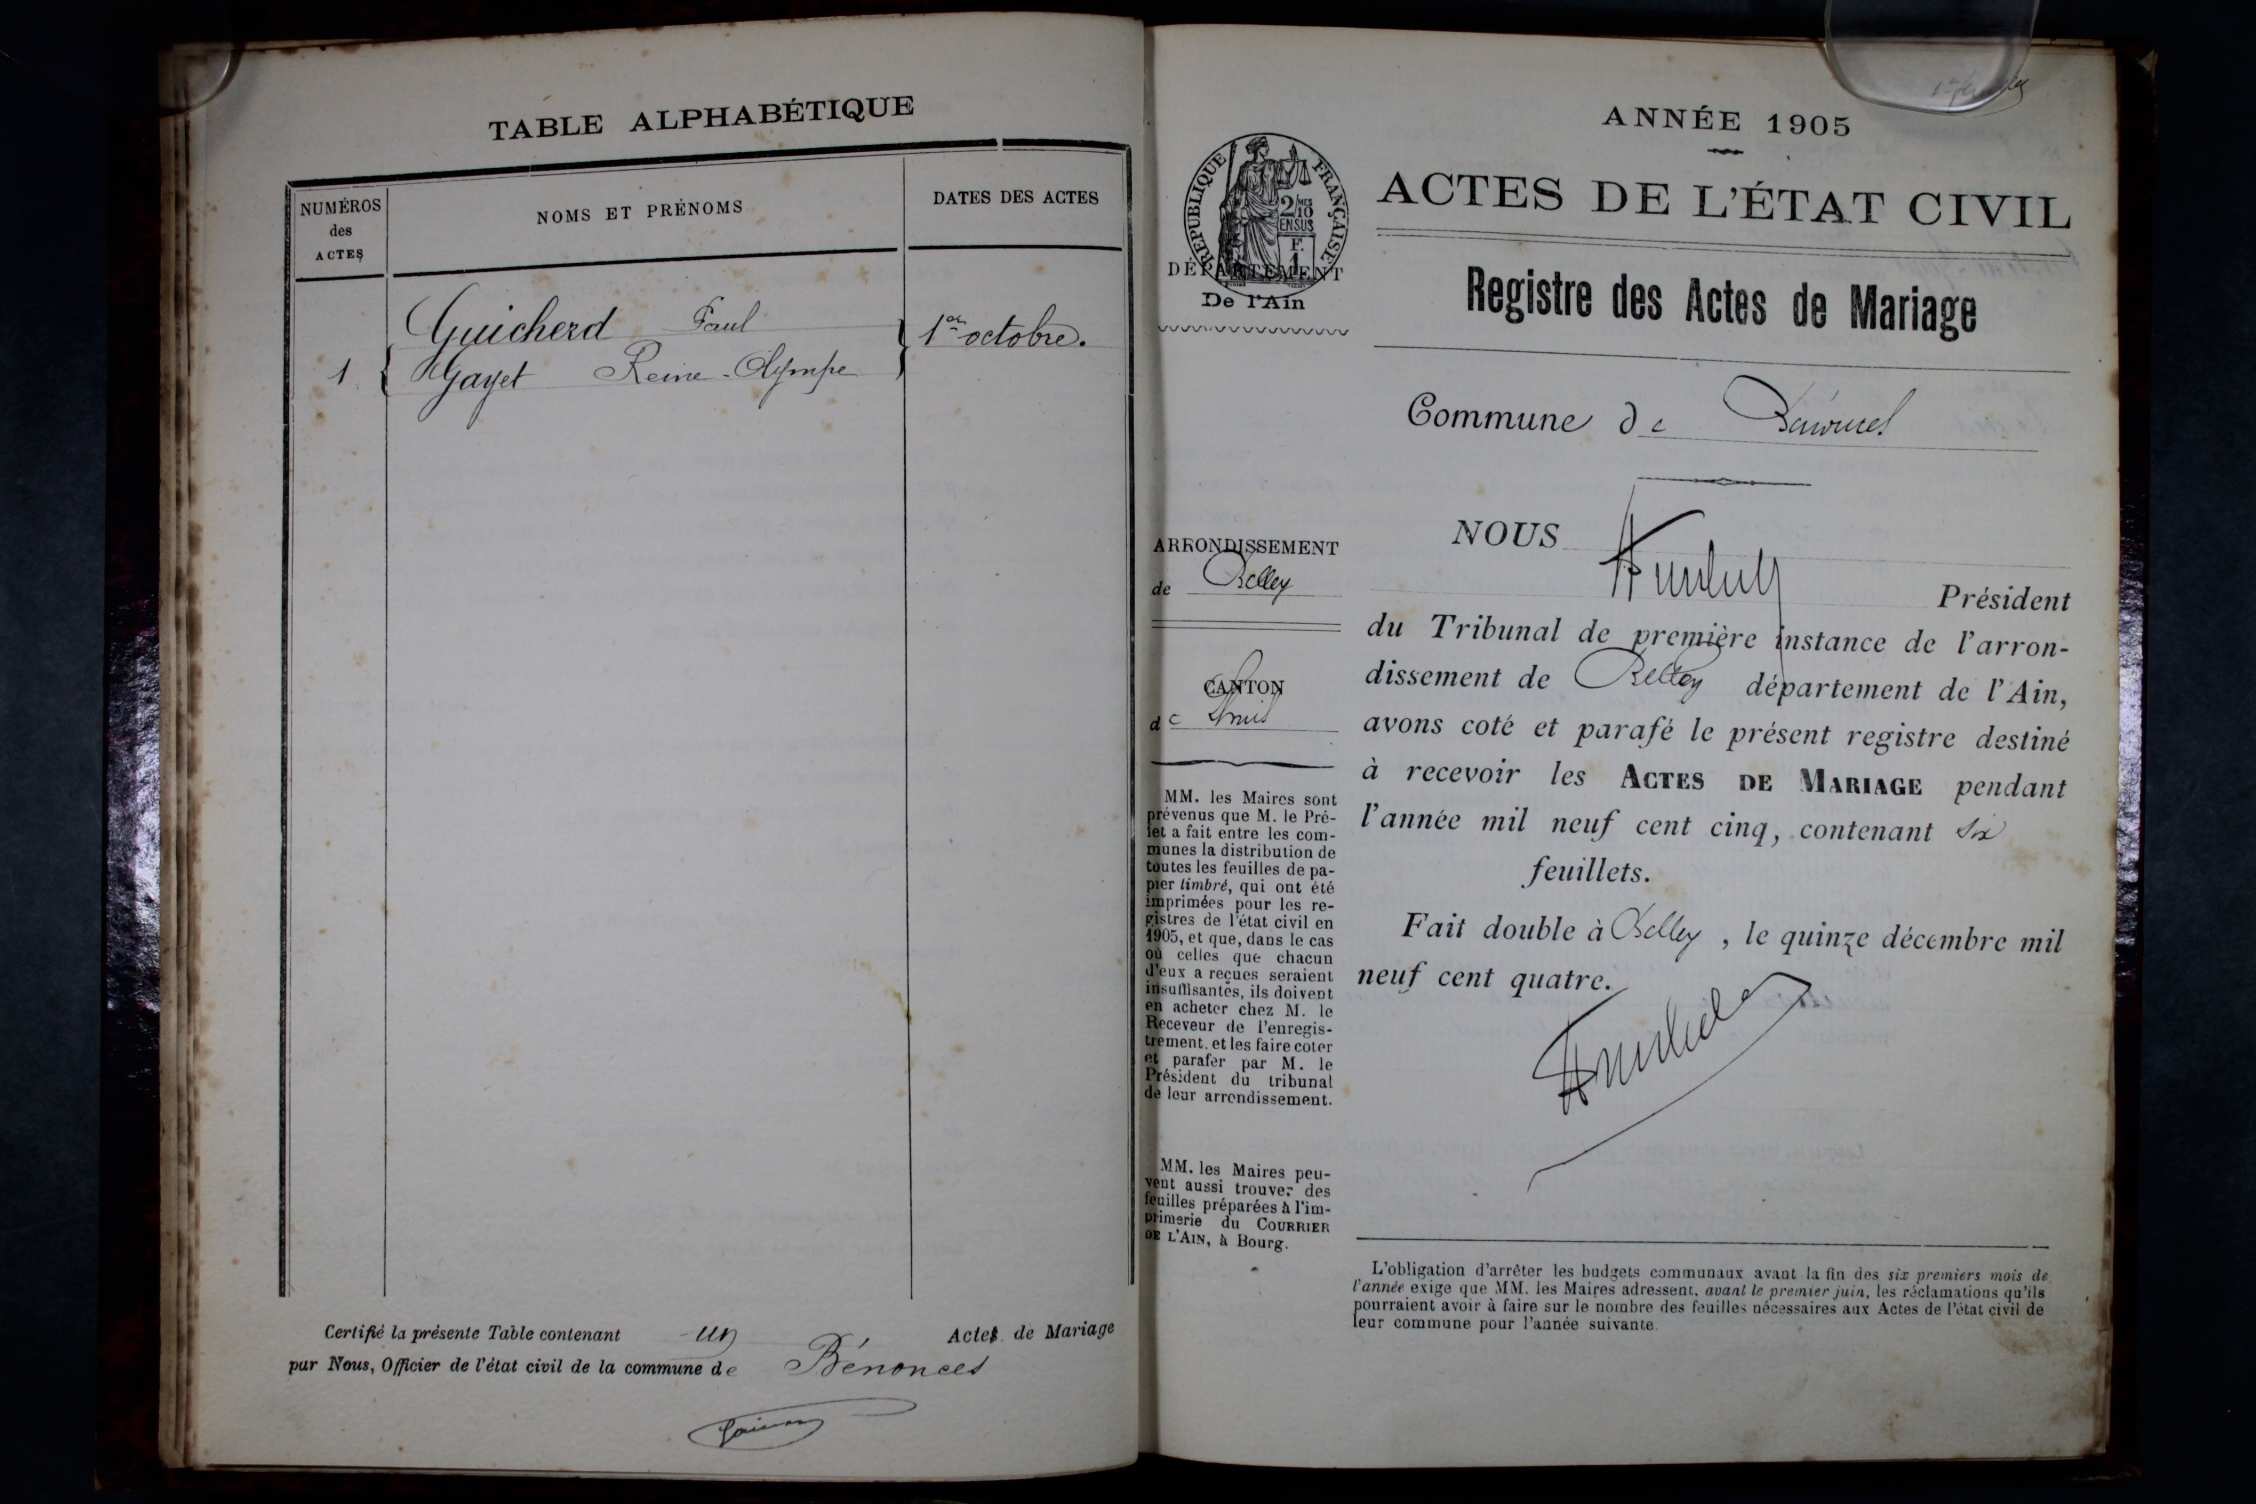 TABLE ALPHABÉTIQUE
NUMÉROS
des
ACTES
NOMS ET PRÉNOMS
DATES DES ACTES
Guicherd Paul
1er octobre.
1
Gayet Reine-Olympe
Certifié la présente Table contenant un Actes de Mariage
par Nous, Officier de l'état civil de la commune de Bénonces
ANNÉE 1905
ACTES DE L'ÉTAT CIVIL
RÉPUBLIQUE FRANÇAISE
2/10
EN SUS
F.
1
DÉPARTEMENT
De l'Ain
Registre des Actes de Mariage
Commune de Bénonces
ARRONDISSEMENT
de Belley
CANTON
de
MM. les Maires sont
prévenus que M. le Pré-
fet a fait entre les com-
munes la distribution de
toutes les feuilles de pa-
pier timbré, qui ont été
imprimées pour les re-
gistres de l'état civil en
1905, et que, dans le cas
où celles que chacun
d'eux a reçues seraient
insuffisantes, ils doivent
en acheter chez M. le
Receveur de l'enregis-
trement, et les faire coter
et parafer par M. le
Président du tribunal
de leur arrondissement.
MM. les Maires peu-
vent aussi trouver des
feuilles préparées à l'im-
primerie du COURRIER
DE L'AIN, à Bourg.
NOUS
Président
du Tribunal de première instance de l'arron-
dissement de Belley département de l'Ain,
avons coté et parafé le présent registre destiné
à recevoir les ACTES DE MARIAGE pendant
l'année mil neuf cent cinq, contenant six
feuillets.
Fait double à Belley, le quinze décembre mil
neuf cent quatre.
L'obligation d'arrêter les budgets communaux avant la fin des six premiers mois de
l'année exige que MM. les Maires adressent, avant le premier juin, les réclamations qu'ils
pourraient avoir à faire sur le nombre des feuilles nécessaires aux Actes de l'état civil de
leur commune pour l'année suivante.